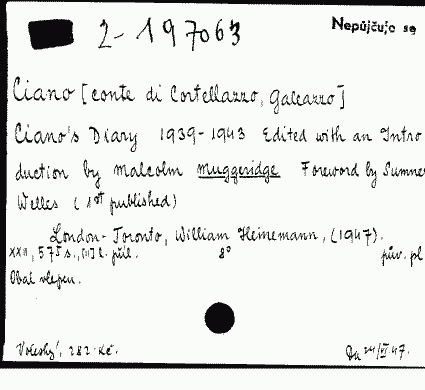 2-197063
Nepůjčuje se
Ciano [conte di Cortellazzo, Galeazzo]
Ciano's Diary 1939-1943 Edited with an Intro
duction by Malcolm Muggeridge Foreword by Sumner
Welles (1st published)
London-Toronto, William Heinemann, (1947).
XXII, 575 s., [1] l. příl. 8° pův. pl
Obal vlepen.
282 Kč. Da 24/VI.47.